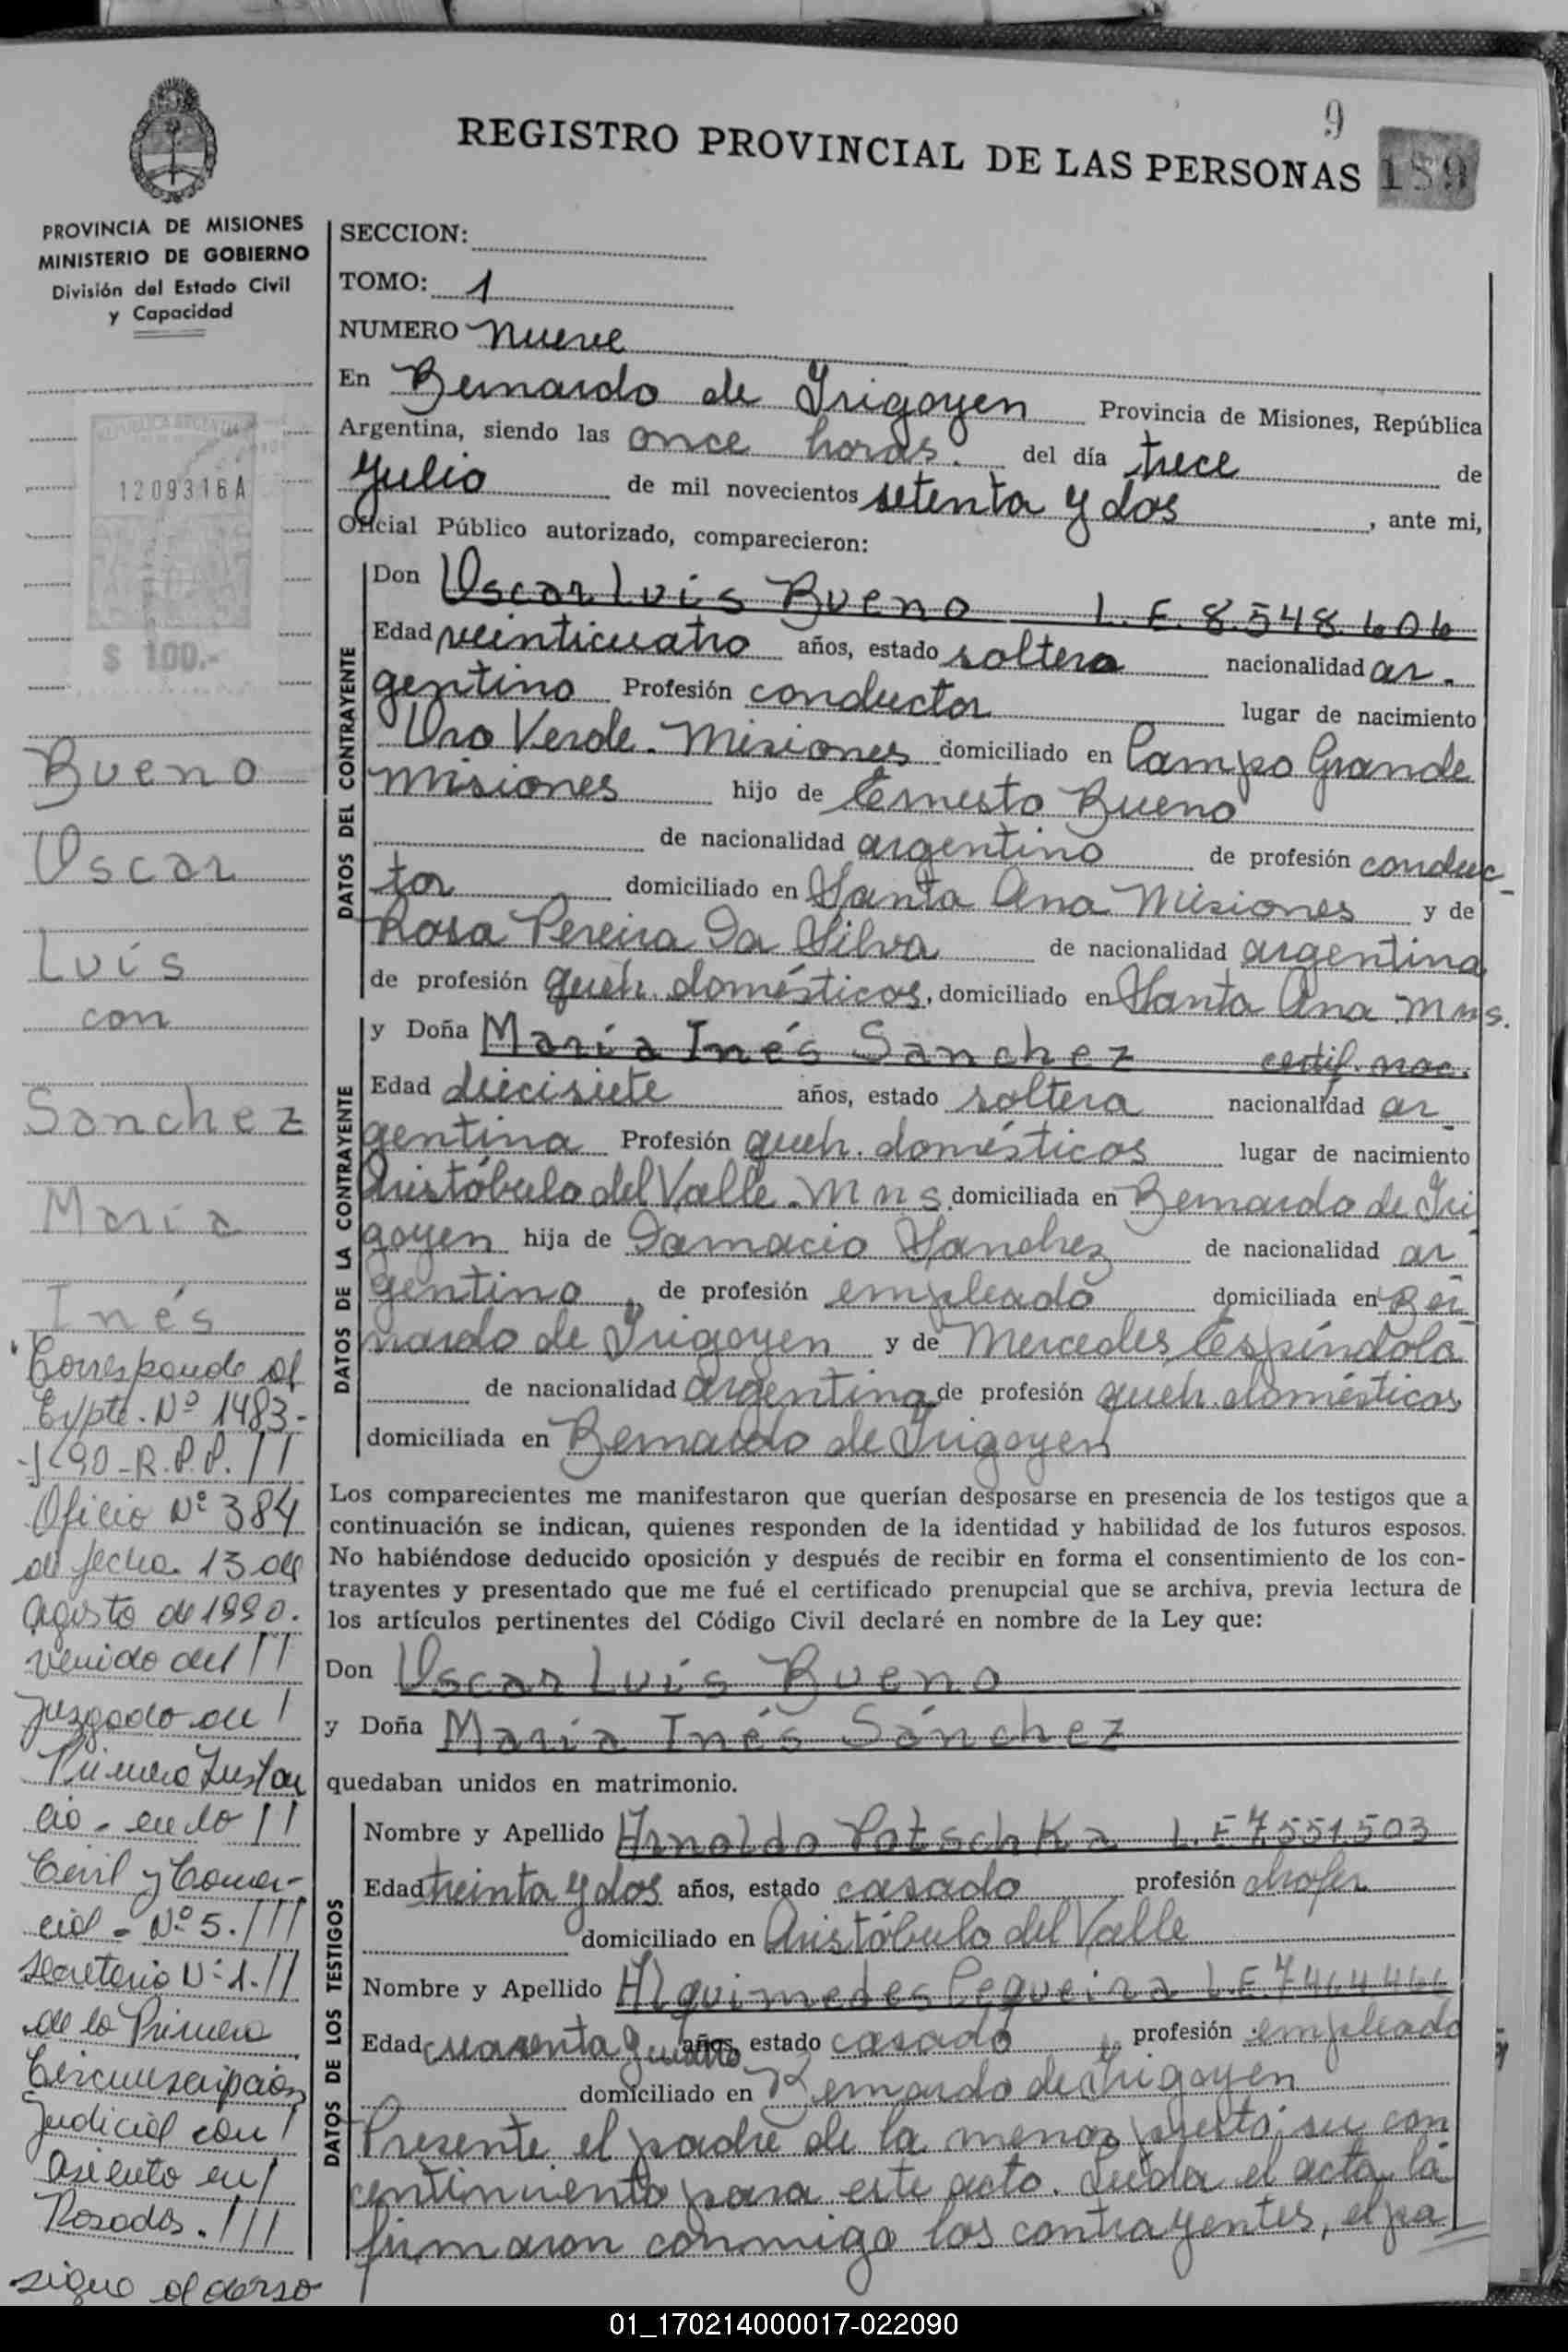 9
REGISTRO PROVINCIAL DE LAS PERSONAS
159
PROVINCIA DE MISIONES
MINISTERIO DE GOBIERNO
División del Estado Civil
y Capacidad
REPUBLICA ARGENTINA
1209316A
$ 100.-
Bueno
Oscar
Luis
con
Sanchez
María
Inés
Corresponde al
Expte. Nº 1483-
90-R.P.P. //
Oficio Nº 384
de fecha 13 de
Agosto de 1990.
venido del //
Juzgado de /
Primera Instan
cia - en lo //
Civil y Comer-
cial - Nº 5. ///
secretaria Nº 1. //
de la Primera
Circunscripción
Judicial con /
asiento en /
Posadas. ///
sigue al dorso
SECCION:
TOMO: 1
NUMERO nueve
En Bernardo de Irigoyen Provincia de Misiones, República
Argentina, siendo las once horas. del día trece de
Julio de mil novecientos setenta y dos, ante mi,
Oficial Público autorizado, comparecieron:
DATOS DEL CONTRAYENTE
Don Oscar Luis Bueno L.E. 8.548.606
Edad veinticuatro años, estado soltero nacionalidad ar-
gentino Profesión conductor lugar de nacimiento
Oro Verde - Misiones domiciliado en Campo Grande
Misiones hijo de Ernesto Bueno
de nacionalidad argentino de profesión conduc-
tor domiciliado en Santa Ana Misiones y de
Rosa Pereira Da Silva de nacionalidad argentina
de profesión queh. domésticos, domiciliado en Santa Ana Mnes.
DATOS DE LA CONTRAYENTE
y Doña María Inés Sanchez certif. nac.
Edad diecisiete años, estado soltera nacionalidad ar
gentina Profesión queh. domésticos lugar de nacimiento
Aristóbulo del Valle - Mnes domiciliada en Bernardo de Iri
goyen hija de Damacio Sanchez de nacionalidad ar
gentino, de profesión empleado domiciliada en Ber
nardo de Irigoyen y de Mercedes Espíndola
de nacionalidad argentina de profesión queh. domésticos
domiciliada en Bernardo de Irigoyen
Los comparecientes me manifestaron que querían desposarse en presencia de los testigos que a
continuación se indican, quienes responden de la identidad y habilidad de los futuros esposos.
No habiéndose deducido oposición y después de recibir en forma el consentimiento de los con-
trayentes y presentado que me fué el certificado prenupcial que se archiva, previa lectura de
los artículos pertinentes del Código Civil declaré en nombre de la Ley que:
Don Oscar Luis Bueno
y Doña María Inés Sánchez
quedaban unidos en matrimonio.
DATOS DE LOS TESTIGOS
Nombre y Apellido Arnoldo Potschka L.E 7.551.503
Edad treinta y dos años, estado casado profesión chofer
domiciliado en Aristóbulo del Valle
Nombre y Apellido Alquimedes Cequeira L.E. 7.464.466
Edad cuarenta y cuatro años, estado casado, profesión empleado
domiciliado en Bernardo de Irigoyen
Presente el padre de la menor presta su con
centimiento para este acto. Leída el acta la
firmaron conmigo los contrayentes, el pa
01_170214000017-022090